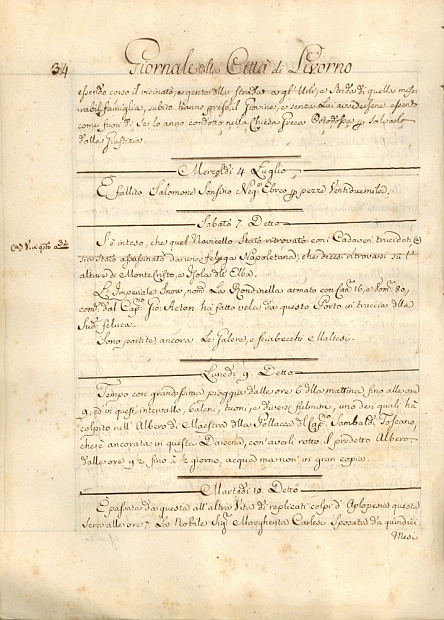 34 Giornale della Città di Livorno
essendo corso il vicinato, e gente della strada a gl'Urli, e Strida di quella miser
rabil famiglia, subito hanno preso il Giovine, e senza Lui avvedersene essendo
come fuori di Se lo anno condotto nella Chiesa Greca Ortodossa per Salvarlo
dalla Giustizia.
Mercoledì 4 Luglio
È fallito Salomone Sonsino Negte Ebreo per pezze Ventiduemila.
Sabato 7. Detto
(a) V. in qto a 34
S'è inteso, che quel Navicello Stato ritrovato con i Cadaveri trucidati (a)
sia stato assassinato da una feluga Napoletana, che dicesi ritrovarsi su l'
altura di Monte Cristo, e Isola dell'Elba.
L'Imperiale Snow, nomta La Rondinella armato con Canni 16, e Uomni 80,
comdto dal Capno Gio: Acton hà fatto vela da questo Porto in traccia della
Sudta feluca.
Sono partite ancora le Galere, e sciabecchi Maltesi.
Lunedì 9. Detto
Tempo con grandissima pioggia dalle ore 6 della mattina fino alle ore
9, ed in quest'intervallo, baleni, tuoni, e diversi fulmini, uno dei quali hà
colpito nell'Albero di Maestro della Pollacca del Capno Sambaldi Toscano,
che è ancorata in questa Darsena, con averli rotto il predetto Albero.
dalle ore 9 1/2 fino à 1/2 giorno, acqua ma non in gran copia.
Martedì 10. Detto
È passata da questa all'altra Vita di replicati colpi d'Aplopesia questa
Sera alle ore 7. La Nobile Sigra Margherita Carlesi Sposata da quindici
Mesi